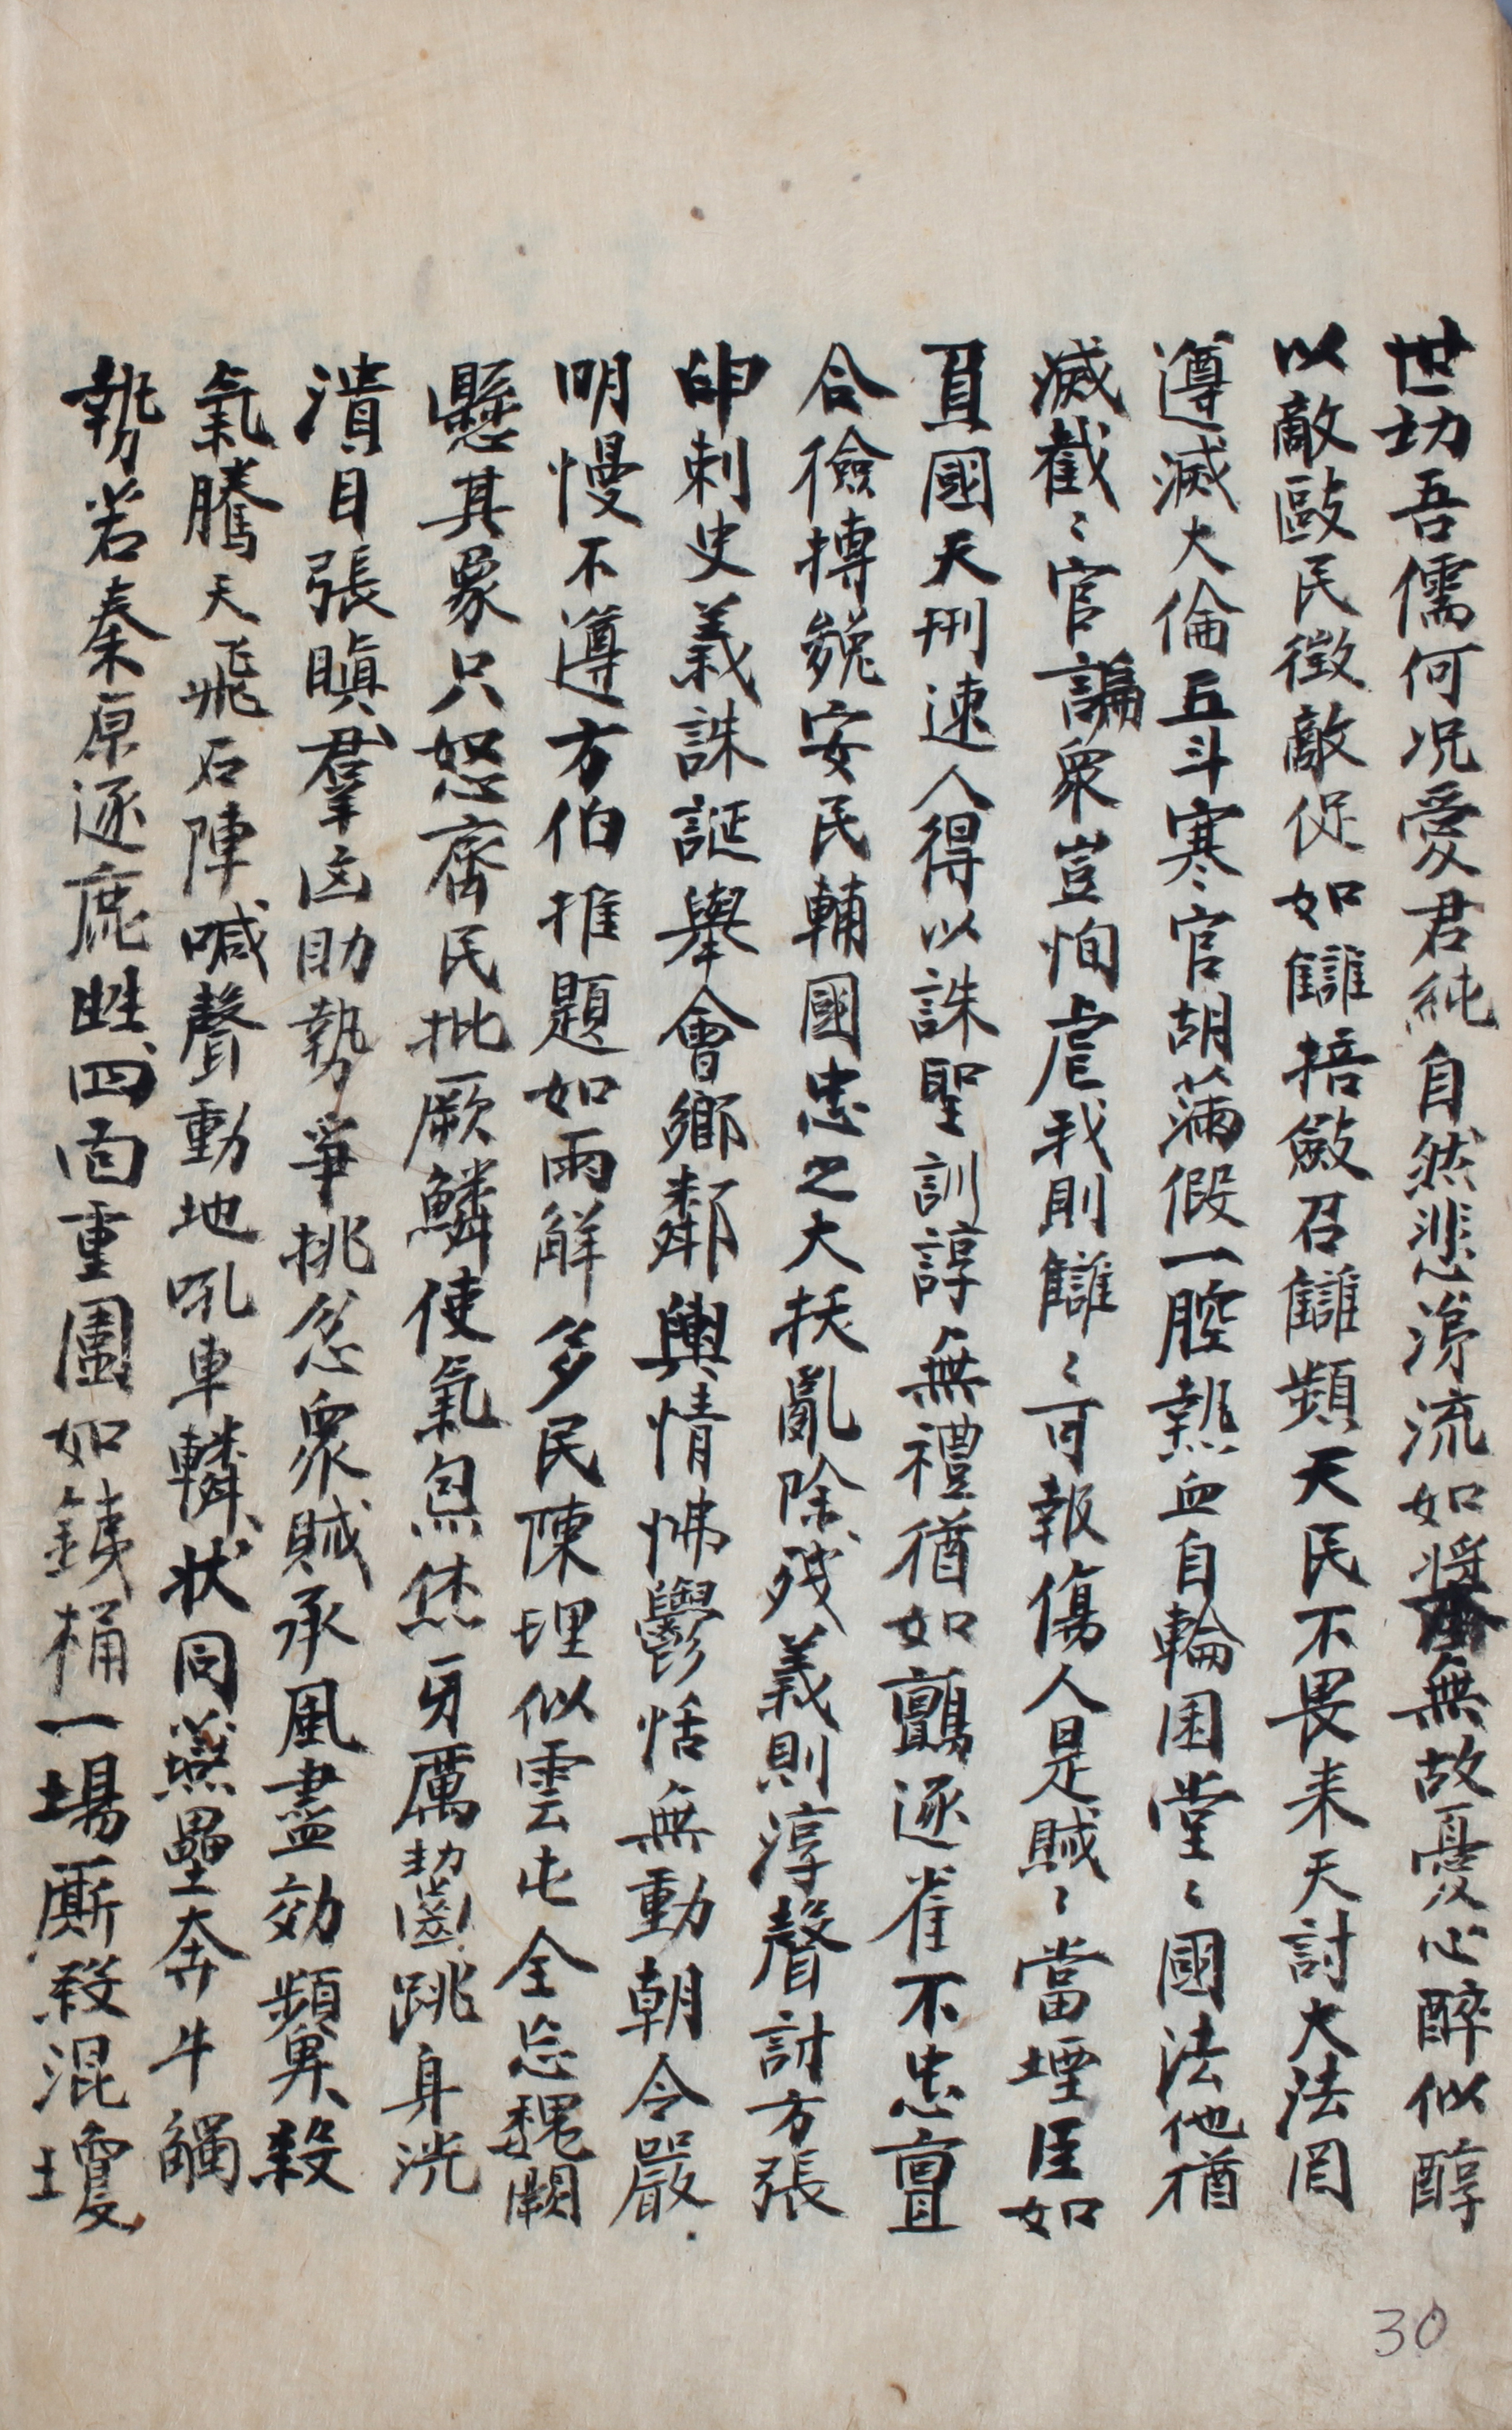 世功吾儒何况愛君純自然悲淂流如將無故憂心醉似醇
以敵歐民徴敵促如讎掊斂召讎頻天民不畏来天討大法罔
遵滅大倫五斗寒官胡滿假一腔熱血自輪囷堂〻國法他猶
滅截〻官諞衆豈恂虐我則讎〻可報傷人是賊〻當堙臣如
負國天刑速人得以誅聖訓諄無禮猶如鸇逐雀不忠亶
合儉搏㕙安民輔國忠之大扶亂除殘義則淳聲討方張
印刺史義誅誕舉會鄉鄰輿情怫鬱恬無動朝令嚴
明慢不遵方伯推題如雨觧多民陳理似雲屯全忘魏闕
懸其象只怒齊民批厥鱗使氣炰烋牙厲齒跳身洸
潰目張瞋羣凶助勢爭挑忿衆賊承風盡効頻鼻殺
氣騰天飛石陣喊聲動地吼車轔状同燕壘奔牛觸
勢若秦原逐鹿甡四面重圍如鉄桶一場厮殺混㙾
30